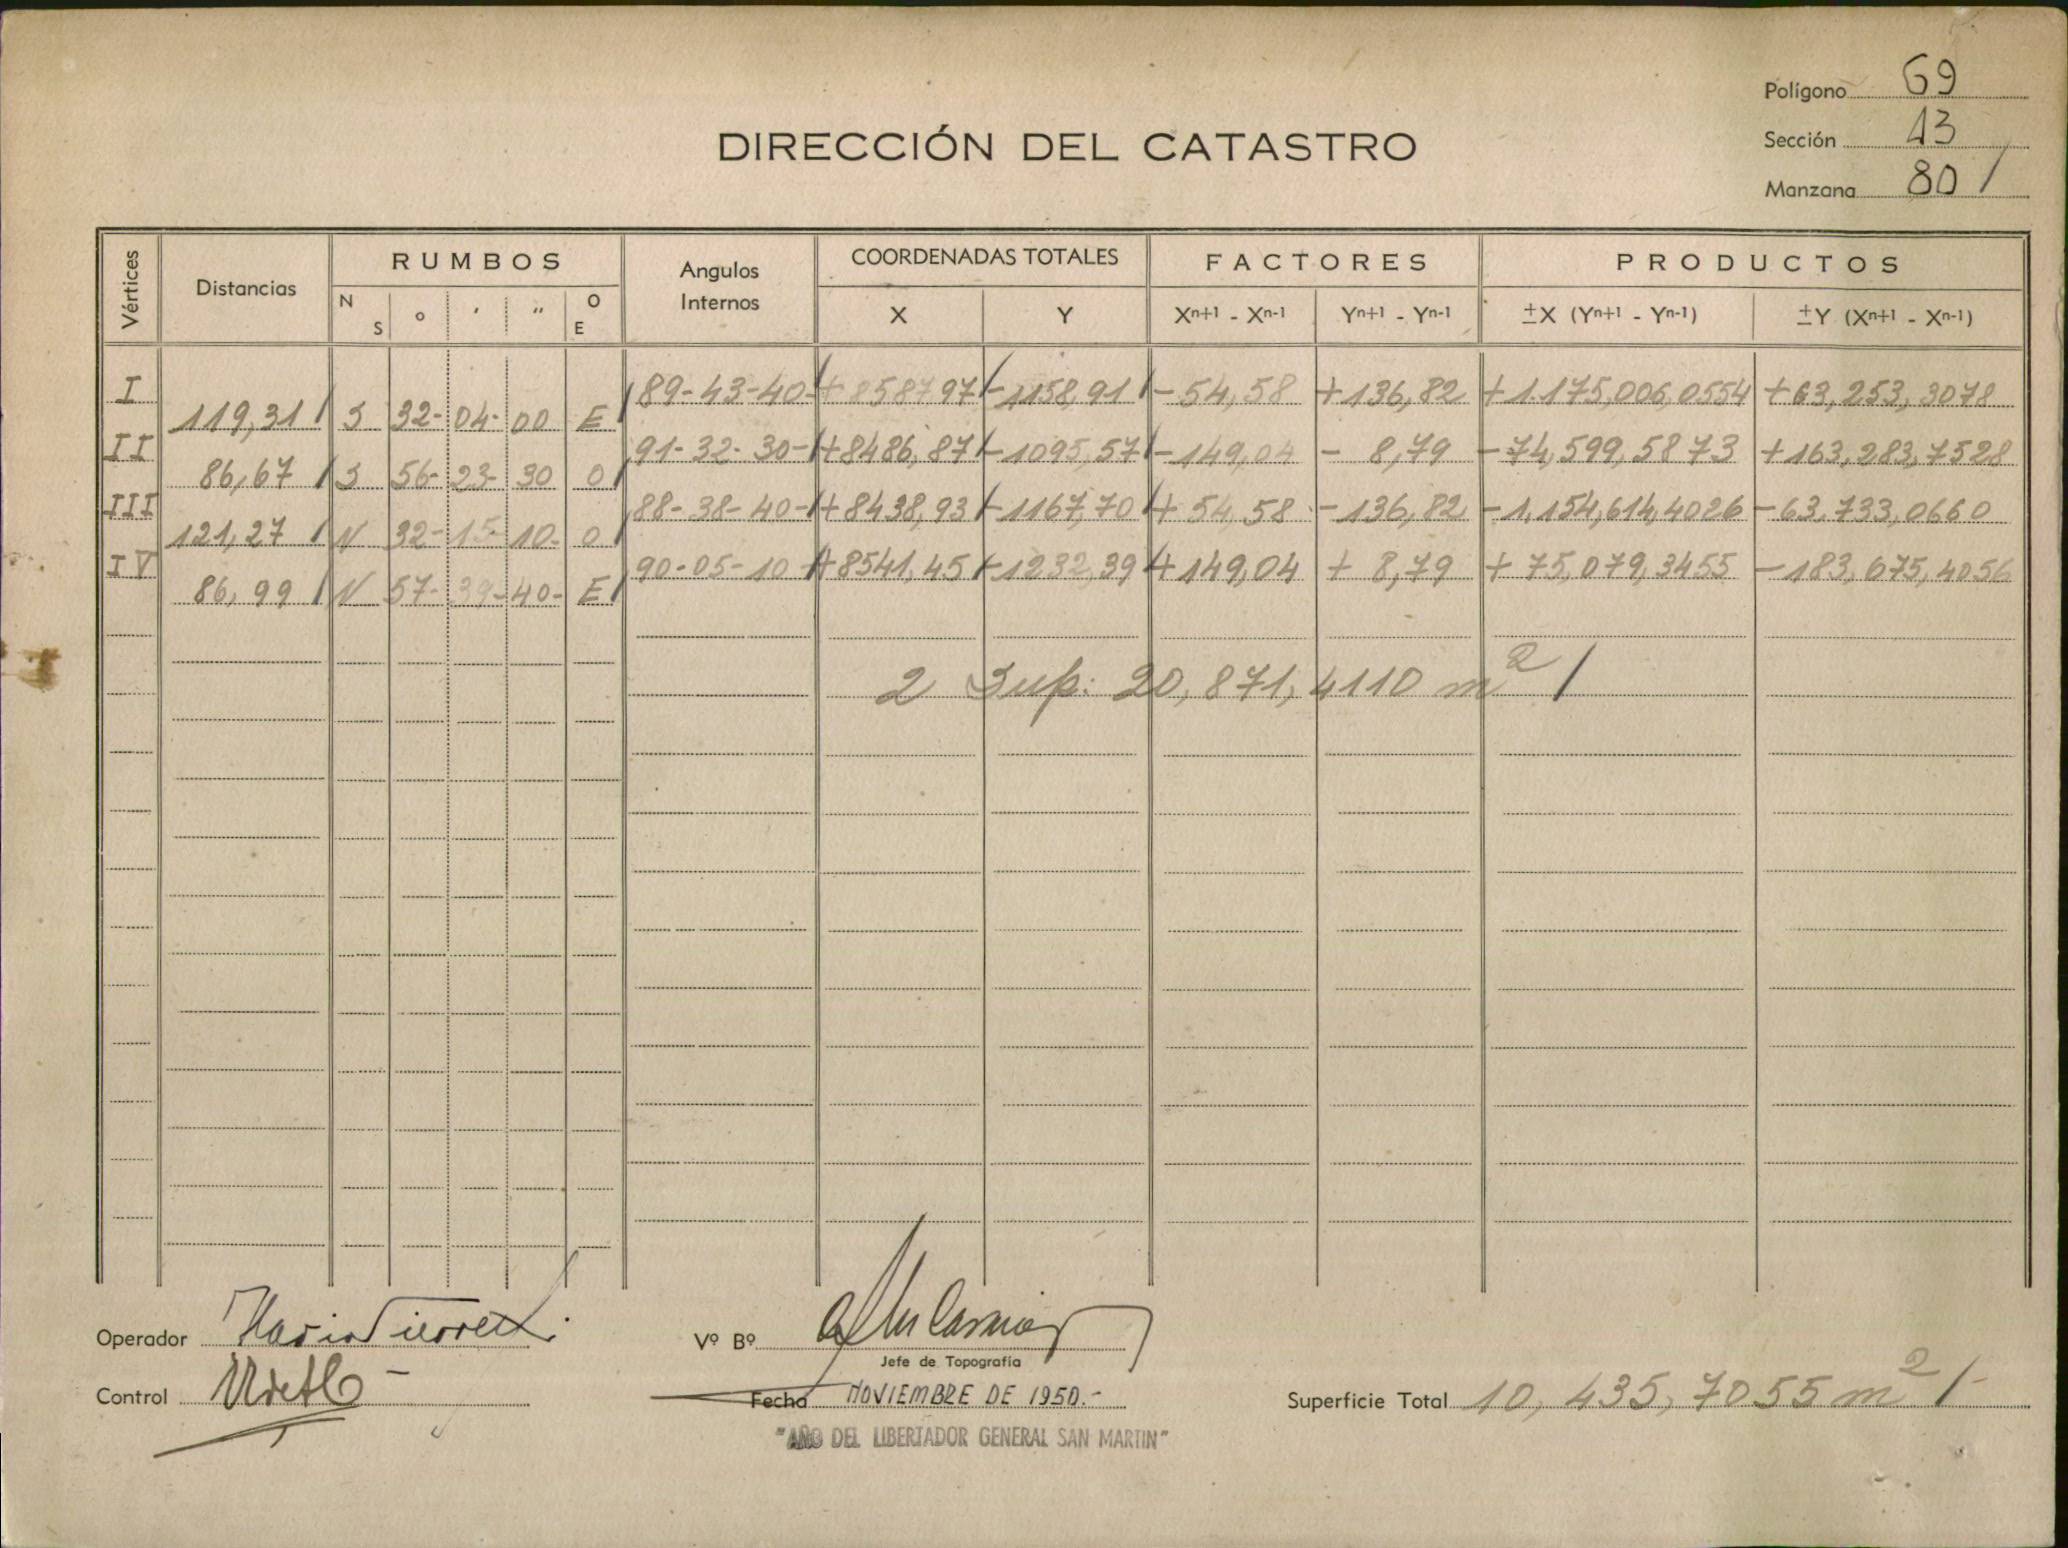 Polígono 69
DIRECCIÓN DEL CATASTRO
Sección 13
Manzana 80 /
Vértices Distancias RUMBOS Angulos Internos COORDENADAS TOTALES FACTORES PRODUCTOS
N S o ' " O E X Y Xn+1 - Xn-1 Yn+1 - Yn-1 ±X (Yn+1 - Yn-1) ±Y (Xn+1 - Xn-1)
I 89-43-40- +8587,97 -1158,91 -54,58 +136,82 +1.175,006,0554 +63,253,3078
119,31 S 32- 04- 00 E
II 91-32-30- +8486,87 -1095,57 -149,04 - 8,79 -74,599,5873 +163,283,7528
86,67 S 56- 23- 30 O
III 88-38-40- +8438,93 -1167,70 +54,58 -136,82 -1,154,614,4026 -63,733,0660
121,27 N 32- 15- 10- O
IV 90-05-10 +8541,45 -1232,39 +149,04 + 8,79 +75,079,3455 -183,675,4056
86,99 N 57- 39- 40- E
2 Sup: 20,871,4110 m2 /
Operador
Vº Bº
Jefe de Topografía
Control
Fecha NOVIEMBRE DE 1950.-
Superficie Total 10,435,7055 m2 /-
"AÑO DEL LIBERTADOR GENERAL SAN MARTIN"